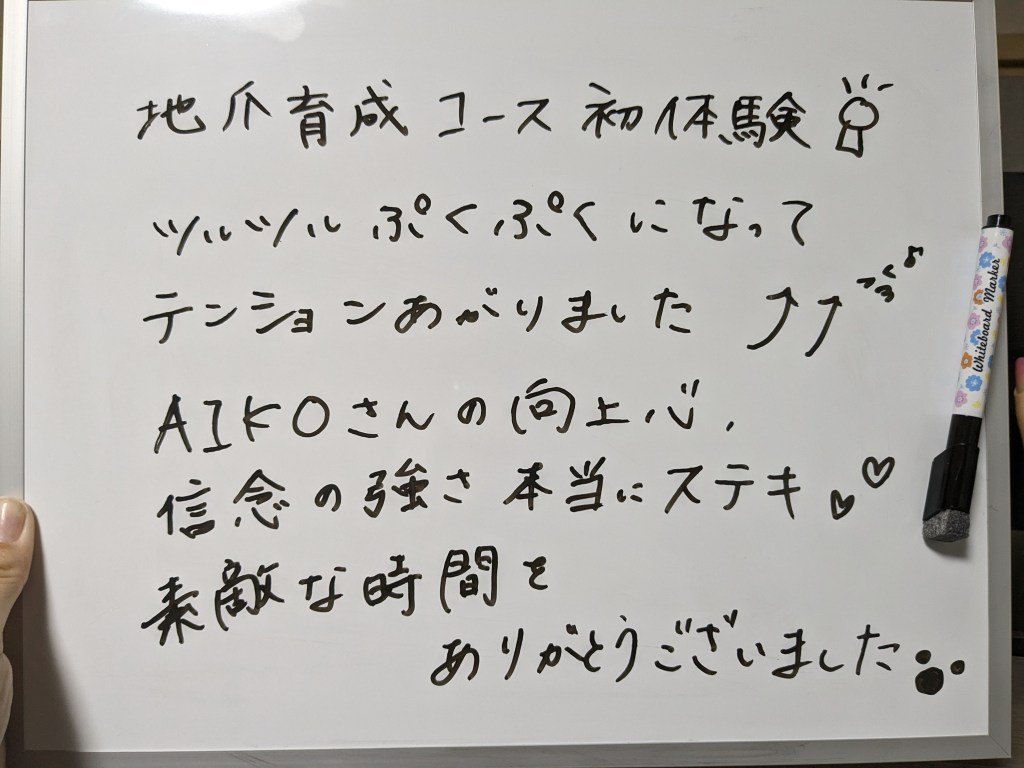 地爪育成コース初体験
ツルツルぷくぷくになって
テンションあがりました
AIKOさんの向上心、
信念の強さ本当にステキ♡♡
素敵な時間を
ありがとうございました
Whiteboard Marker